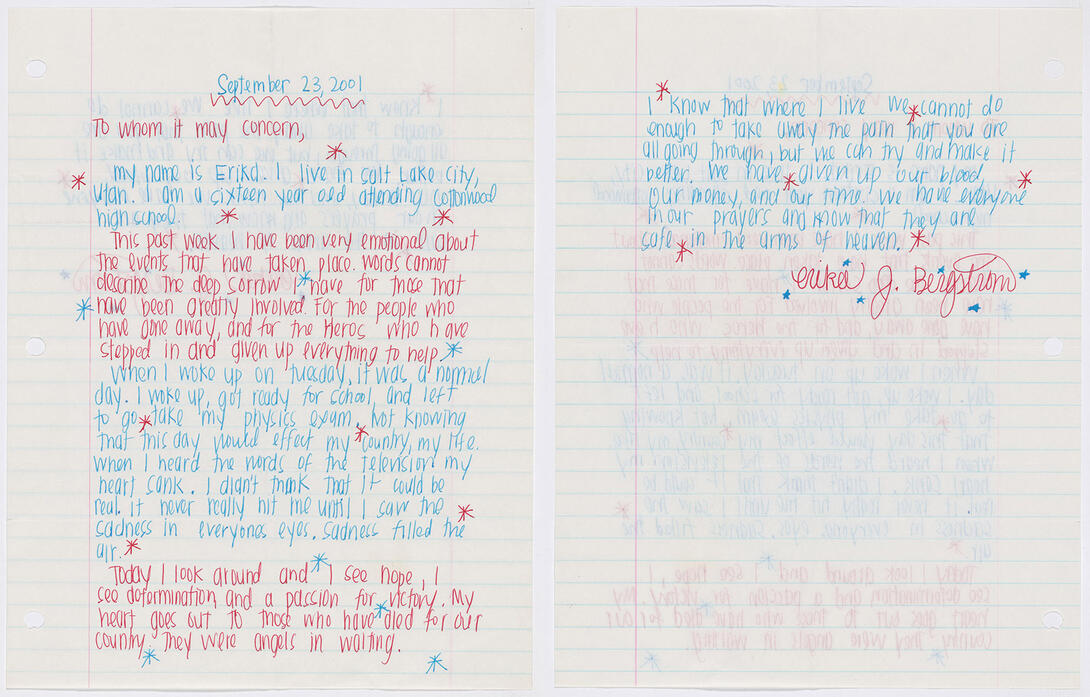 September 23, 2001
To whom it may concern,
my name is Erika. I live in salt Lake city,
utah. I am a sixteen year old attending cottonwood
high school.
This past week I have been very emotional about
the events that have taken place. words cannot
describe the deep sorrow I have for those that
have been greatly involved. For the people who
have gone away, and for the Heros who have
stepped in and given up everything to help.
When I woke up on tuesday, it was a normal
day. I woke up, got ready for school, and left
to go take my physics exam. Not knowing
that this day would effect my country, my life.
when I heard the words of the television my
heart sank. I didn't think that it could be
real. it never really hit me until I saw the
sadness in everyones eyes. sadness filled the
air.
Today I look around and I see hope, I
see determination and a passion for victory. My
heart goes out to those who have died for our
country. They were angels in waiting.
I know that where I live we cannot do
enough to take away the pain that you are
all going through, but we can try and make it
better. We have given up our blood,
our money, and our time. We have everyone
in our prayers and know that they are
safe in the arms of heaven.
erika J. Bergstrom